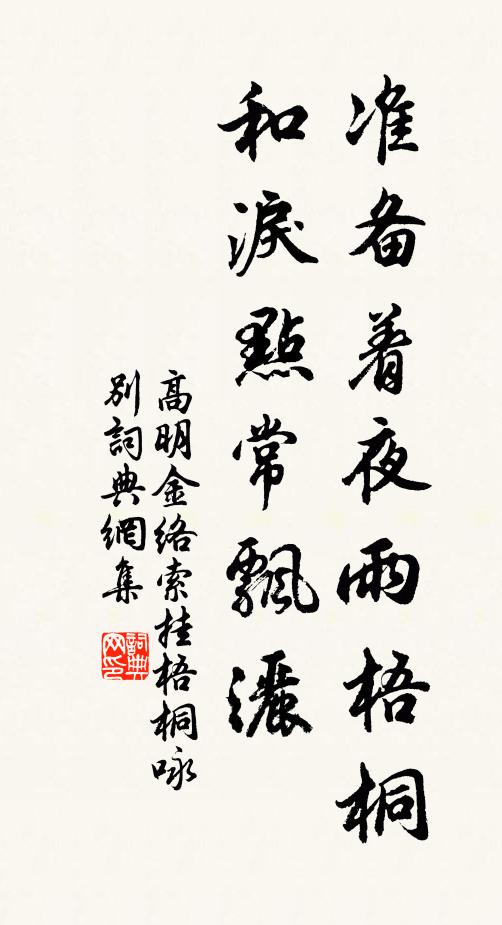 准备着夜雨梧桐
和淚點常飄灑
高明金络索挂梧桐咏
别詞典網集
詞典网印